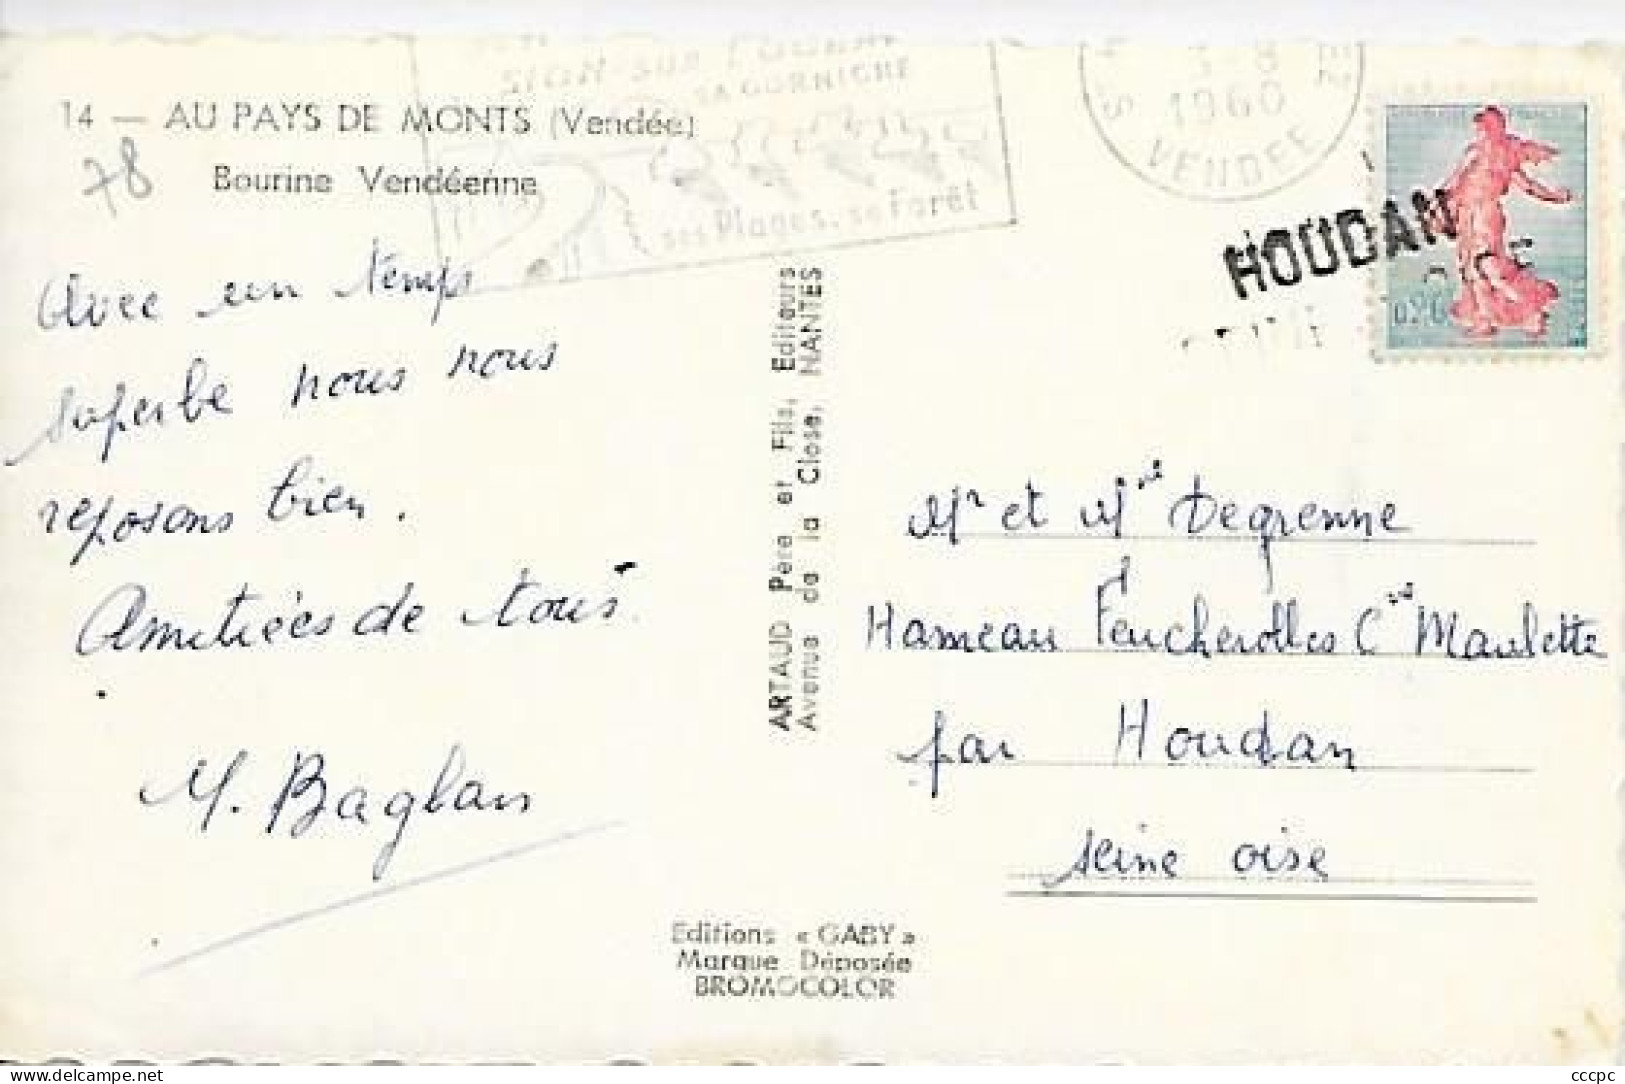 SION-sur-L'OCEAN
SA CORNICHE
ses Plages, sa Forêt
1960
VENDEE
14 — AU PAYS DE MONTS (Vendée)
78
Bourine Vendéenne
HOUDAN
OISE
0,20
Avec un temps
superbe nous nous
reposons bien.
Amitiées de tous.
M. Baglan
ARTAUD Père et Fils, Editeurs
Avenue de la Close, NANTES
Mr et Mme Degrenne
Hameau Feucherolles Cne Maulette
par Houdan
seine oise
Editions « GABY »
Marque Déposée
BROMOCOLOR
cccpc